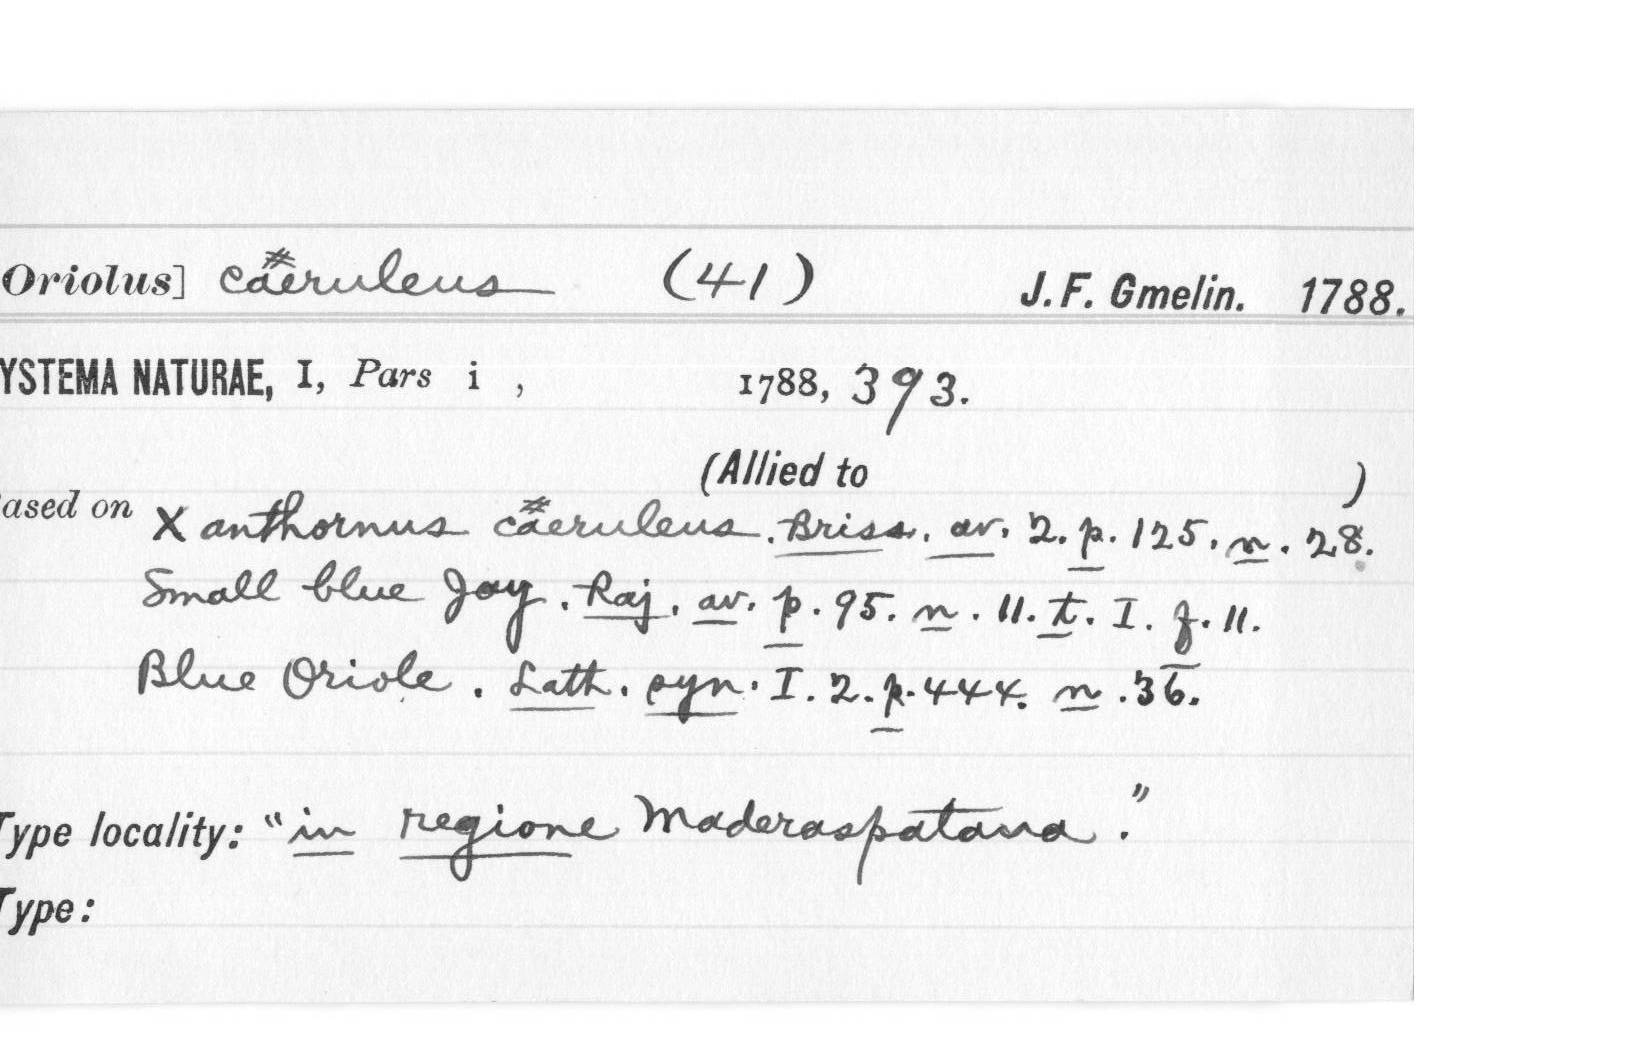 Oriolus] caeruleus (41) J. F. Gmelin. 1788.
YSTEMA NATURAE, I, Pars i , 1788, 393.
(Allied to )
ased on Xanthornus caeruleus. Briss. av. 2. p. 125. n. 28.
Small blue Jay. Raj. av. p. 95. n. 11. t. I. f. 11.
Blue Oriole. Lath. syn. I. 2. p. 444. n. 36.
Type locality: "in regione Maderaspatana."
Type: